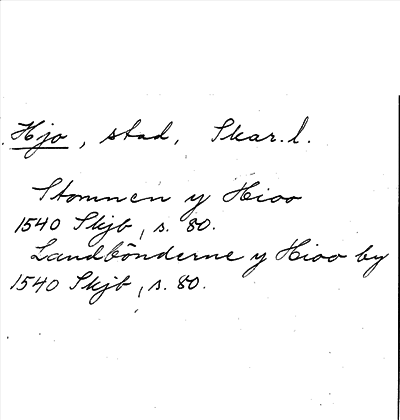 Hjo, stad, Skar.l.
Stomnen y Hioo
1540 Skjb, s. 80.
Landbönderne y Hioo by
1540 Skjb, s. 80.